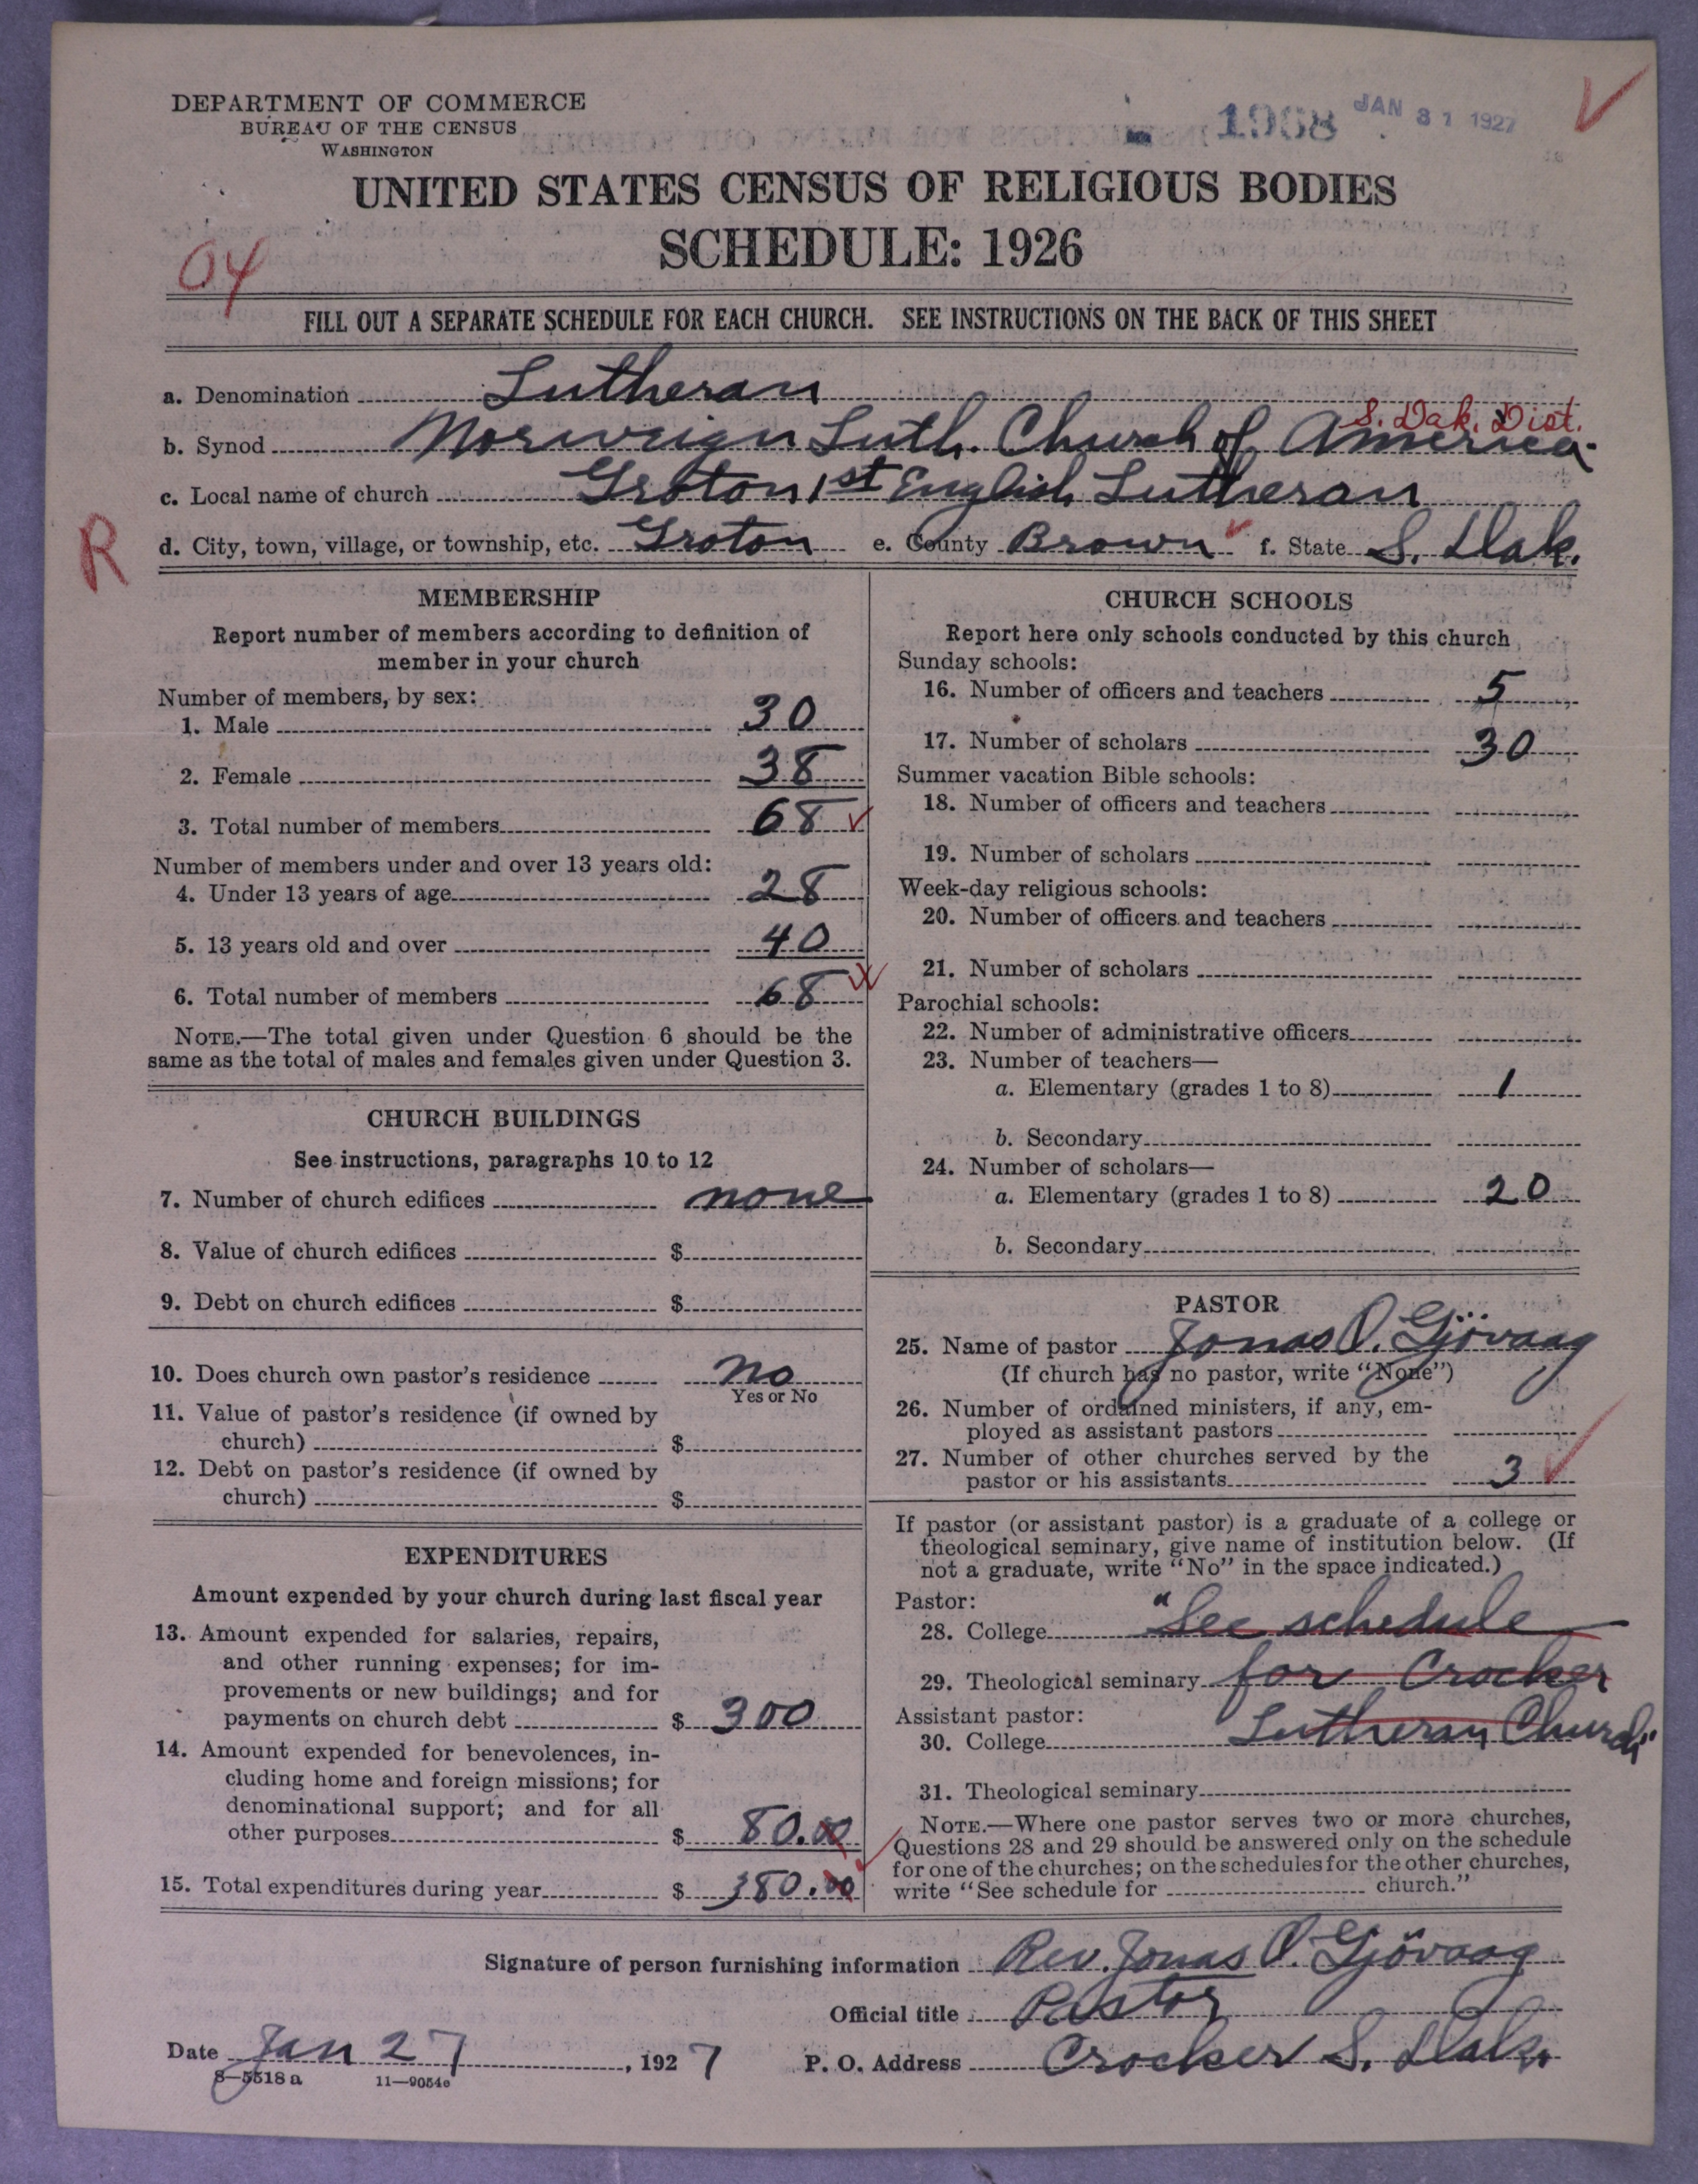 DEPARTMENT OF COMMERCE
BUREAU OF THE CENSUS
WASHINGTON
1968 JAN 31 1927
UNITED STATES CENSUS OF RELIGIOUS BODIES
SCHEDULE: 1926
04
FILL OUT A SEPARATE SCHEDULE FOR EACH CHURCH. SEE INSTRUCTIONS ON THE BACK OF THIS SHEET
a. Denomination Lutheran
S. Dak. Dist.
b. Synod Norweign Luth. Church of America
c. Local name of church Groton 1st English Lutheran
R
d. City, town, village, or township, etc. Groton e. County Brown f. State S. Dak.
MEMBERSHIP
Report number of members according to definition of
member in your church
Number of members, by sex:
1. Male 30
2. Female 38
3. Total number of members 68
Number of members under and over 13 years old:
4. Under 13 years of age 28
5. 13 years old and over 40
6. Total number of members 68
NOTE.—The total given under Question 6 should be the
same as the total of males and females given under Question 3.
CHURCH BUILDINGS
See instructions, paragraphs 10 to 12
7. Number of church edifices none
8. Value of church edifices $
9. Debt on church edifices $
10. Does church own pastor's residence no
Yes or No
11. Value of pastor's residence (if owned by
church) $
12. Debt on pastor's residence (if owned by
church) $
EXPENDITURES
Amount expended by your church during last fiscal year
13. Amount expended for salaries, repairs,
and other running expenses; for im-
provements or new buildings; and for
payments on church debt $ 300
14. Amount expended for benevolences, in-
cluding home and foreign missions; for
denominational support; and for all
other purposes $ 80.00
15. Total expenditures during year $ 380.00
CHURCH SCHOOLS
Report here only schools conducted by this church
Sunday schools:
16. Number of officers and teachers 5
17. Number of scholars 30
Summer vacation Bible schools:
18. Number of officers and teachers
19. Number of scholars
Week-day religious schools:
20. Number of officers and teachers
21. Number of scholars
Parochial schools:
22. Number of administrative officers
23. Number of teachers—
a. Elementary (grades 1 to 8) 1
b. Secondary
24. Number of scholars—
a. Elementary (grades 1 to 8) 20
b. Secondary
PASTOR
25. Name of pastor Jonas O. Gjövaag
(If church has no pastor, write "None")
26. Number of ordained ministers, if any, em-
ployed as assistant pastors
27. Number of other churches served by the
pastor or his assistants 3
If pastor (or assistant pastor) is a graduate of a college or
theological seminary, give name of institution below. (If
not a graduate, write "No" in the space indicated.)
Pastor:
28. College "See schedule
29. Theological seminary for Crocker
Assistant pastor:
30. College Lutheran Church"
31. Theological seminary
NOTE.—Where one pastor serves two or more churches,
Questions 28 and 29 should be answered only on the schedule
for one of the churches; on the schedules for the other churches,
write "See schedule for church."
Signature of person furnishing information Rev. Jonas O. Gjövaag
Official title Pastor
Date Jan 27, 1927 P. O. Address Crocker S. Dak.
8—5518 a 11—9054c